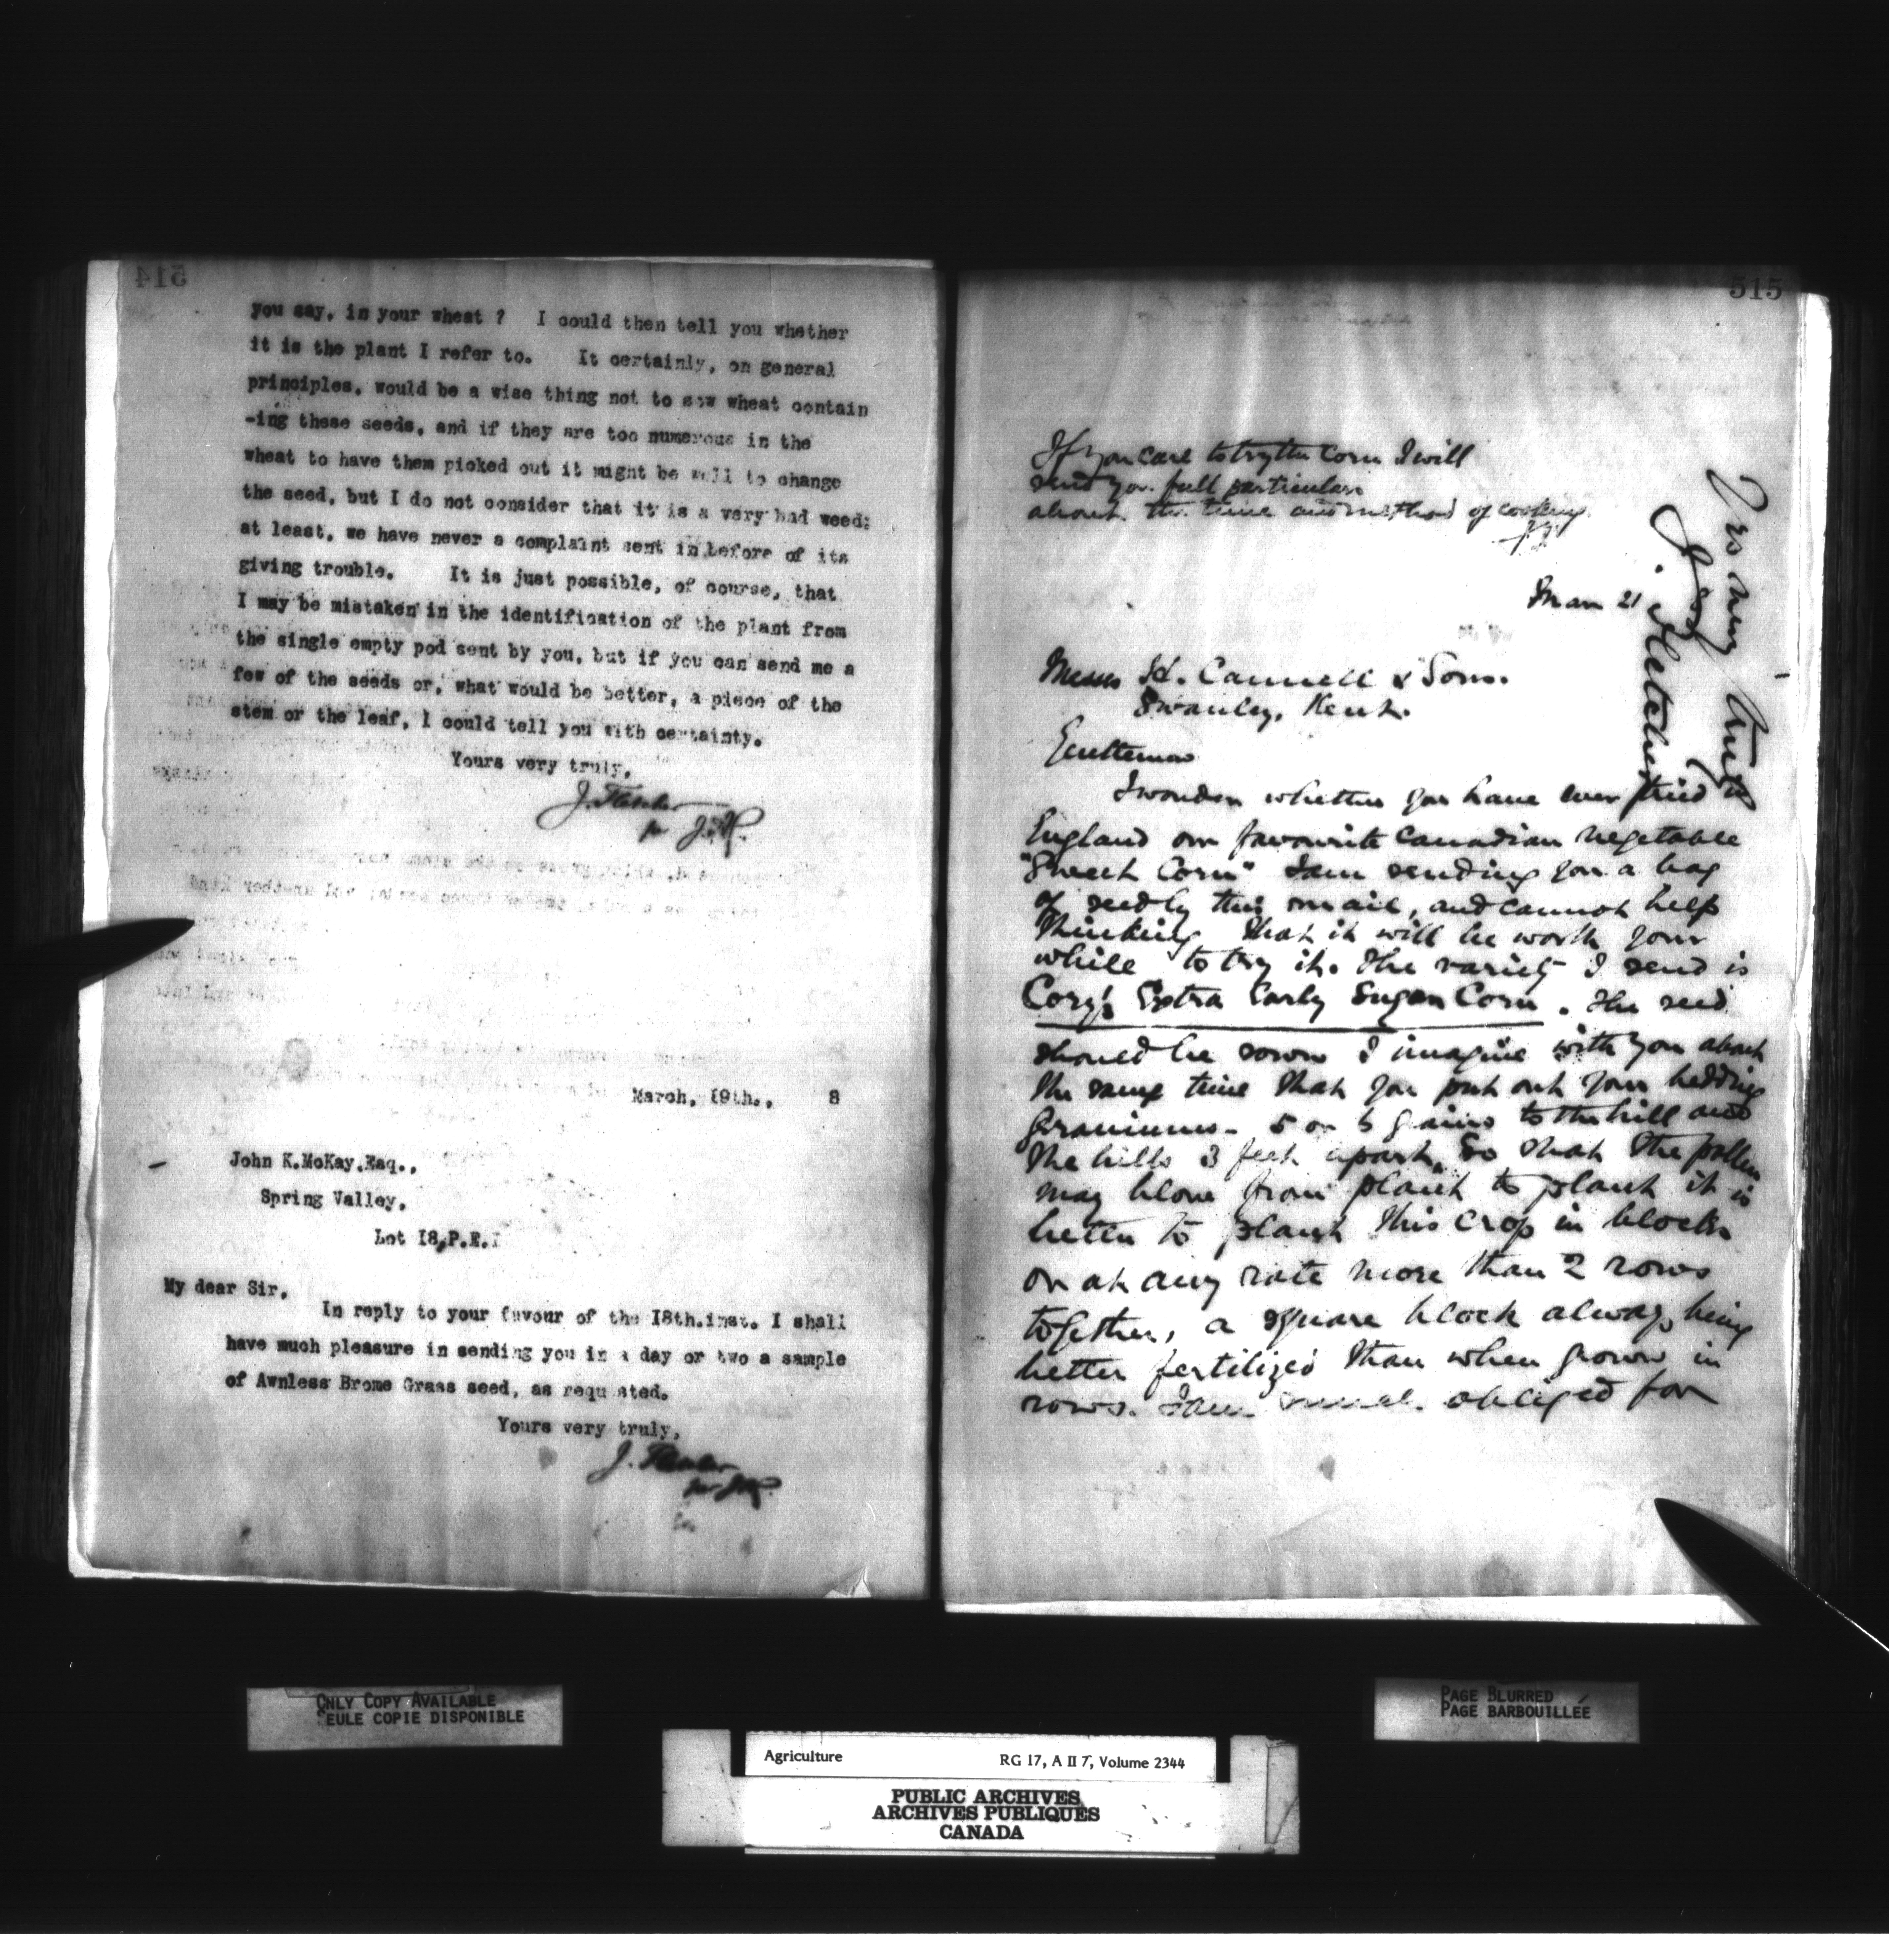 514
you say, in your wheat ? I could then tell you whether
it is the plant I refer to. It certainly, on general
principles, would be a wise thing not to sow wheat contain
-ing these seeds, and if they are too numerous in the
wheat to have them picked out it might be well to change
the seed, but I do not consider that it is a very bad weed;
at least, we have never a complaint sent in before of its
giving trouble. It is just possible, of course, that
I may be mistaken in the identification of the plant from
the single empty pod sent by you, but if you can send me a
few of the seeds or, what would be better, a piece of the
stem or the leaf, I could tell you with certainty.
Yours very truly,
J. Fletcher
per J.A.
March, 19th., 8
John K.McKay,Esq.,
Spring Valley,
Lot 18,P.E.I
My dear Sir,
In reply to your favour of the 18th.inst. I shall
have much pleasure in sending you in a day or two a sample
of Awnless Brome Grass seed, as requested.
Yours very truly,
J. Fletcher
515
If you care to try the Corn I will
send you full particulars
about the time and method of cooking.
J.F.
Mar 21
Messrs H. Cannell & Sons.
Swanley, Kent.
Gentlemen
I wonder whether you have ever tried in
England our favourite Canadian vegetable
"Sweet Corn" I am sending you a bag
of seed by this mail, and cannot help
thinking that it will be worth your
while to try it. The variety I send is
Cory's Extra Early Sugar Corn. The seed
should be sown I imagine with you about
the same time that you put out your bedding
geraniums - 5 or 6 grains to the hill and
the hills 3 feet apart. So that the pollen
may blow from plant to plant it is
better to plant this crop in blocks
or at any rate more than 2 rows
together, a square block always being
better fertilized than when grown in
rows. I am much obliged for
Yrs very truly
J. Fletcher
ONLY COPY AVAILABLE
SEULE COPIE DISPONIBLE
PAGE BLURRED
PAGE BARBOUILLÉE
Agriculture RG 17, A II 7, Volume 2344
PUBLIC ARCHIVES
ARCHIVES PUBLIQUES
CANADA